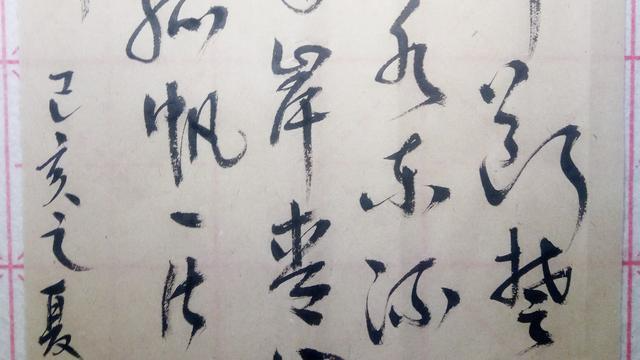 断楚
水东流
岸青
孤帆一片
己亥之夏